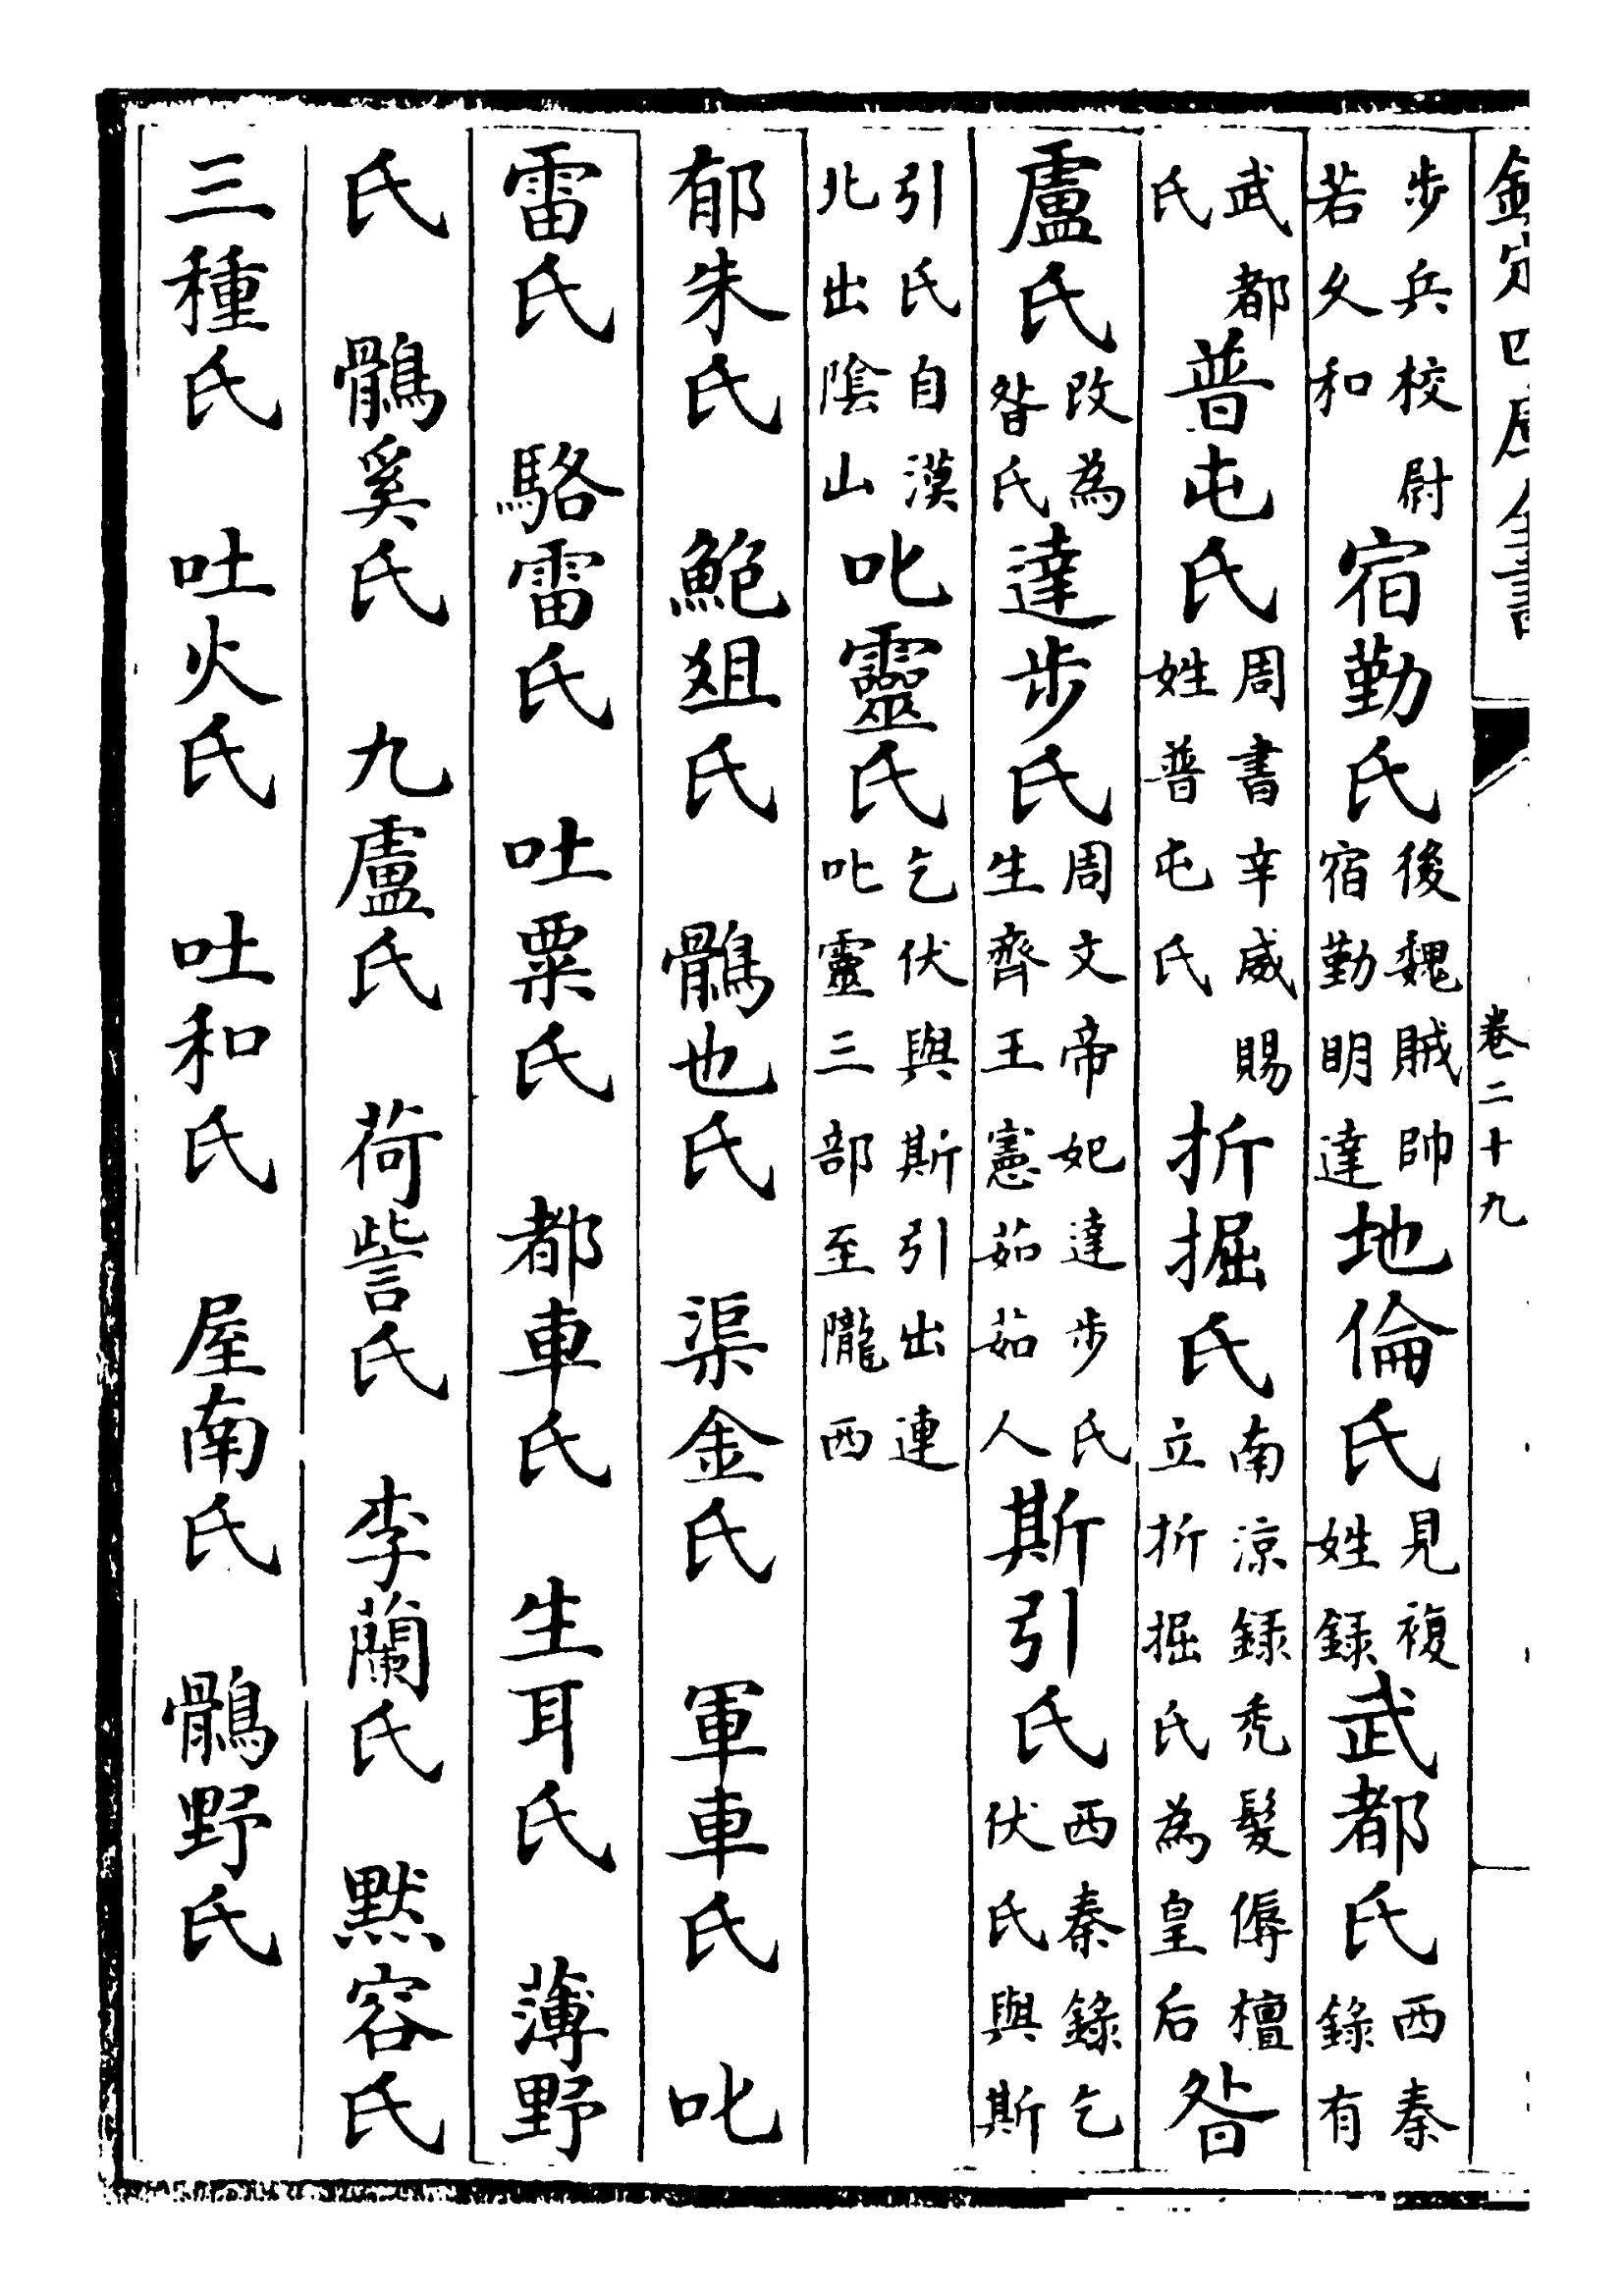 欽定四庫全書
卷二十九
步兵校尉若久和宿勤氏後魏賊帥宿勤明達地倫氏見複姓録武都氏西秦錄有
武都氏普屯氏周書辛威賜姓普屯氏折掘氏南涼録禿髮傉檀立折掘氏為皇后沓
盧氏改為沓氏達步氏周文帝妃達步氏生齊王憲茹茹人斯引氏西秦錄乞伏氏與斯
引氏自漠北出陰山叱靈氏乞伏與斯引出連叱靈三部至隴西
郁朱氏 鮑俎氏 鶻也氏 渠金氏 軍車氏 叱
雷氏 駱雷氏 吐粟氏 都車氏 生耳氏 薄野
氏 鶻奚氏 九盧氏 荷訾氏 李蘭氏 黙容氏
三種氏 吐火氏 吐和氏 屋南氏 鶻野氏